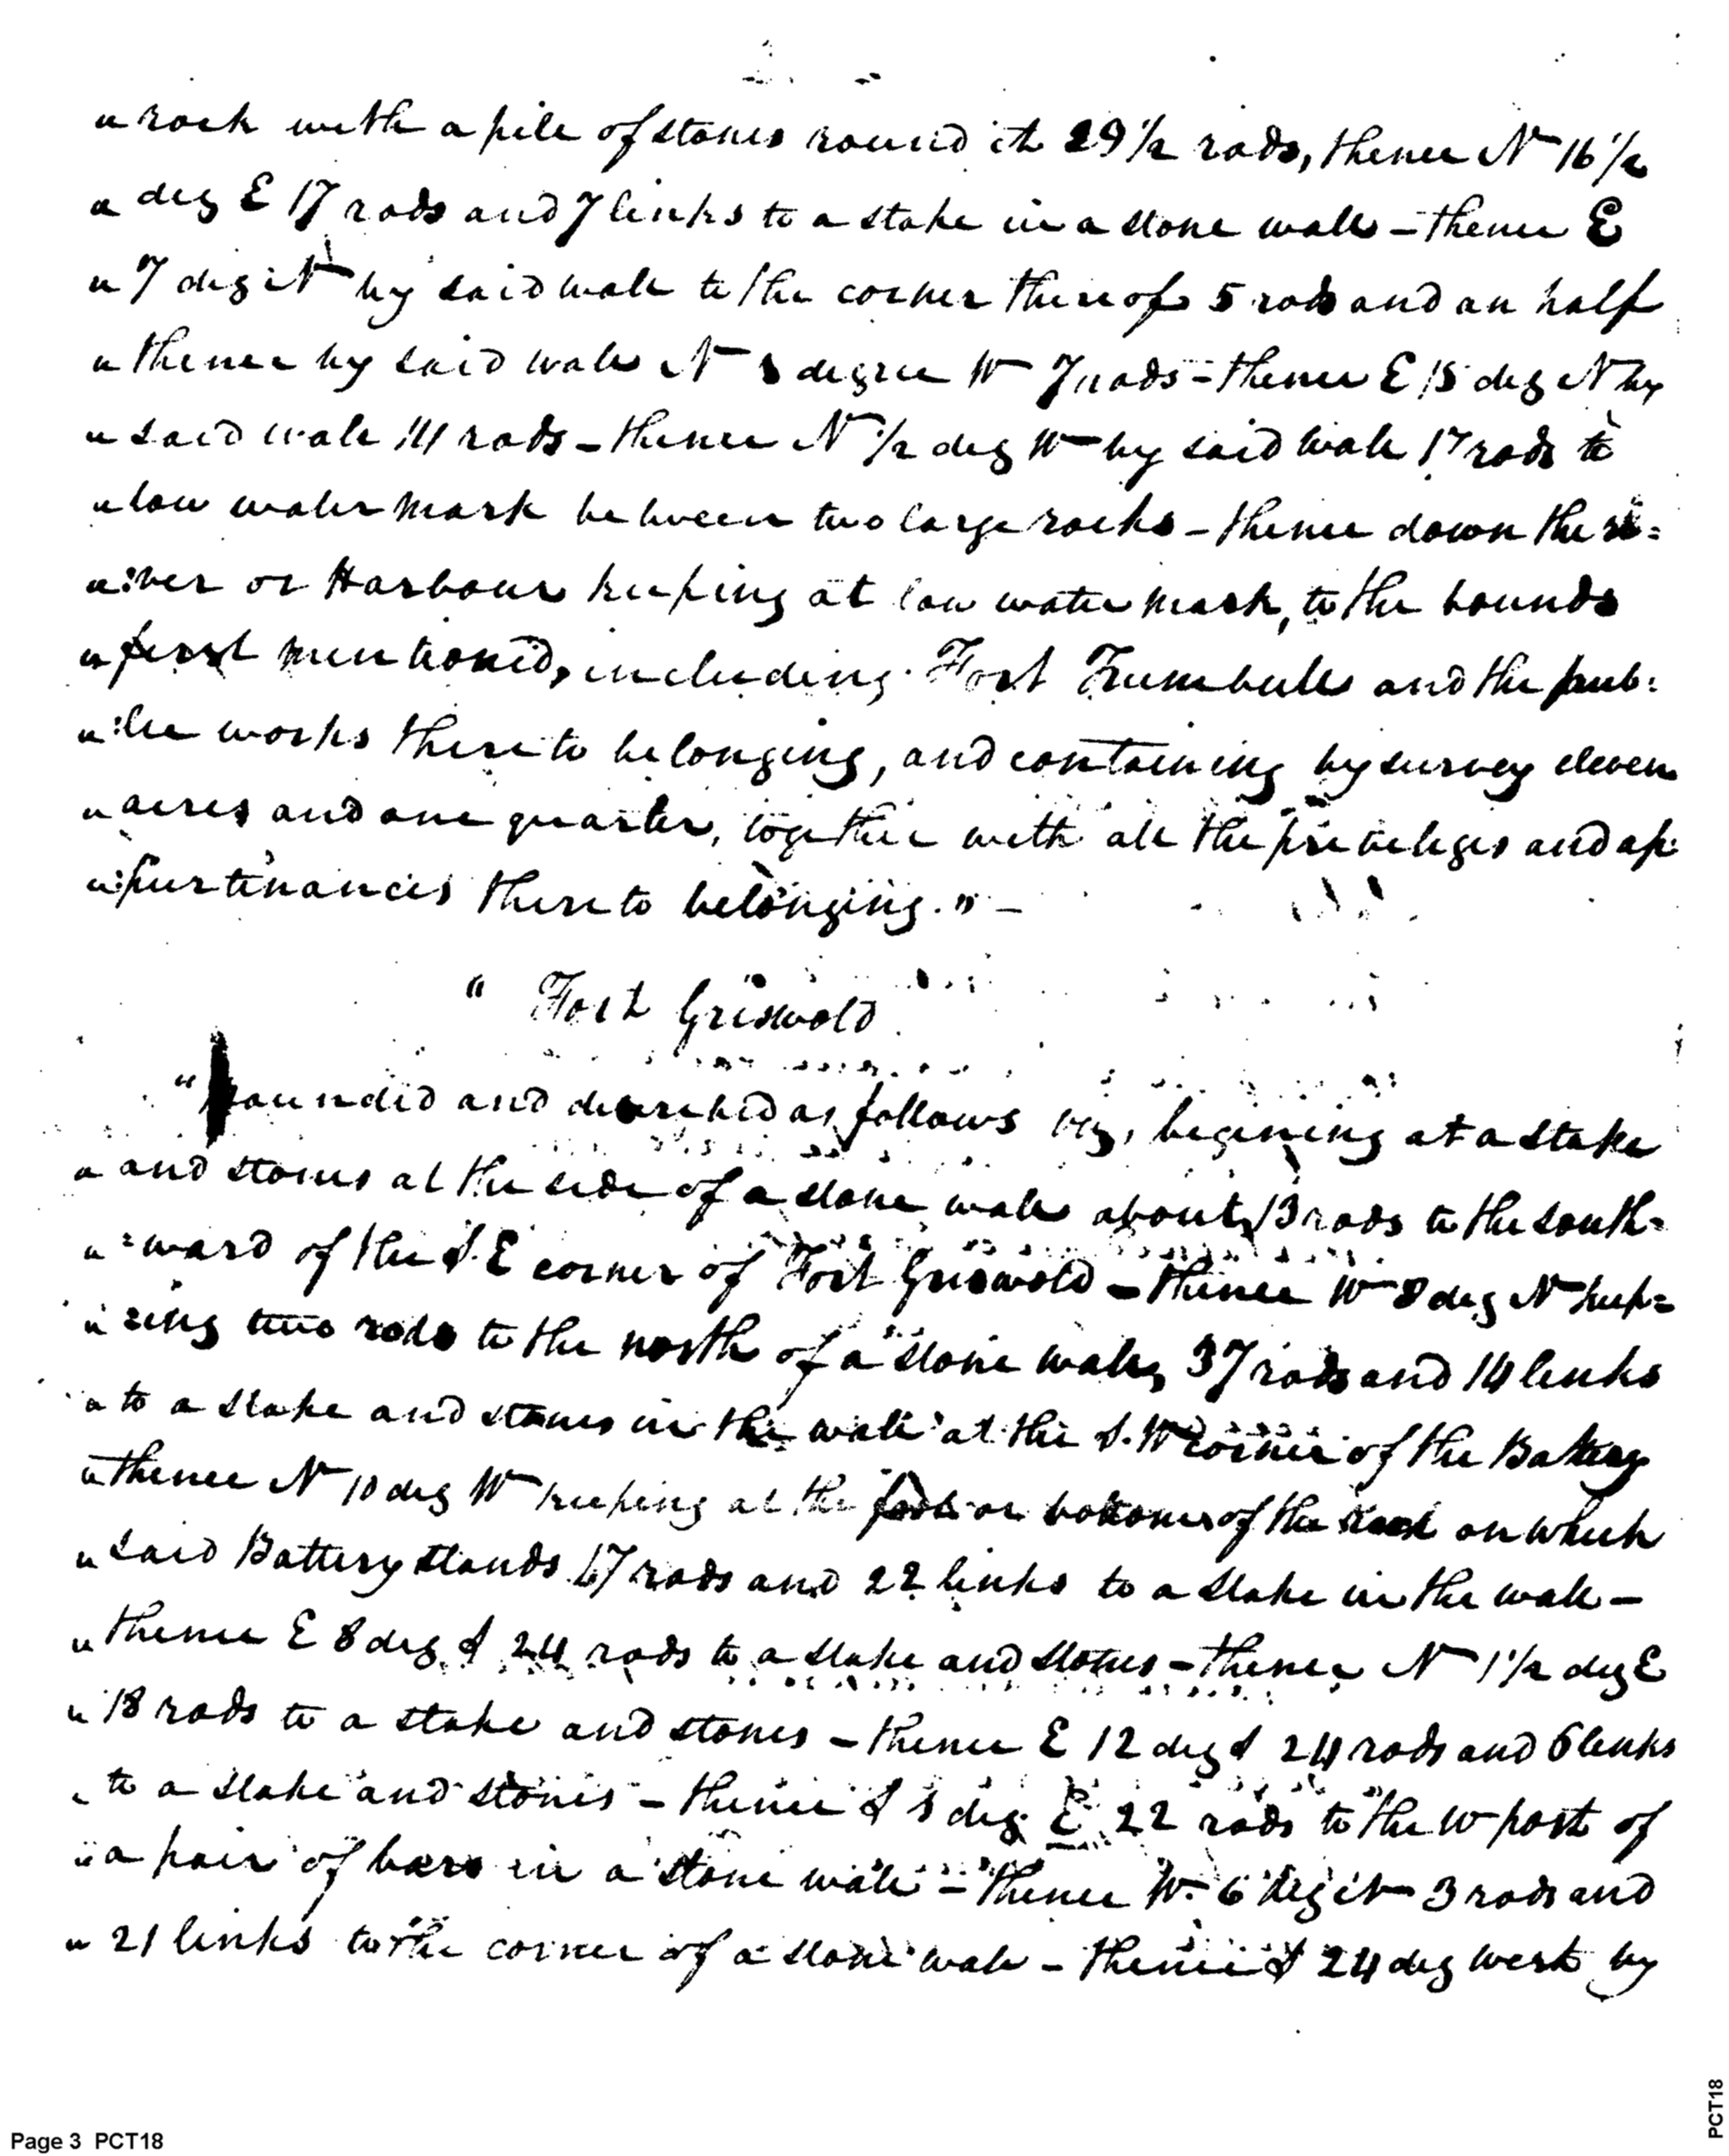 " rock with a pile of stones round it 29 1/2 rods, thence N 16 1/2
" deg E 17 rods and 7 links to a stake in a stone wall – thence E
" 7 deg N by said wall to the corner thereof 5 rods and an half
" thence by said wall N degree W 7 rods – thence E 15 deg N by
" said wall 14 rods – thence N 1/2 deg W by said wall 17 rods to
" low water mark between two large rocks – thence down the ri=
" :ver or Harbour keeping at low water mark, to the bounds
" first mentioned, including Fort Trumbull and the pub:
" :lic works thereto belonging, and containing by survey eleven
" acres and one quarter, together with all the priveleges and ap
" :purtinances thereto belonging." –
" Fort Griswold
" Bounded and described as follows viz, begining at a stake
" and stones at the side of a stone wall about 13 rods to the south=
" =ward of the S. E corner of Fort Griswold – thence W 8 deg N keep=
" =ing two rods to the north of a stone wall, 37 rods and 14 links
" to a stake and stones in the wall at the S. W corner of the Battery
" thence N 10 deg W keeping at the foot or bottom of the on which
" said Battery stands 17 rods and 22 links to a stake in the wall –
" thence E 8 deg S 24 rods to a stake and stones – thence N 1 1/2 deg E
" 18 rods to a stake and stones – thence E 12 deg S 24 rods and 6 links
" to a stake and stones – thence S 5 deg E 22 rods to the W post of
" a pair of bars in a stone wall – thence W. 6 deg N 3 rods and
" 21 links to the corner of a stone wall – thence S 24 deg west by
Page 3 PCT18
PCT18